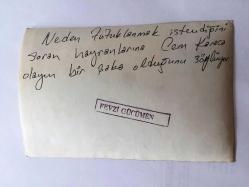 Neden tutuklanmak istendiğini
soran hayranlarına Cem Karaca
olayın bir şaka olduğunu söylüyor
FEVZİ GÜCÜMEN